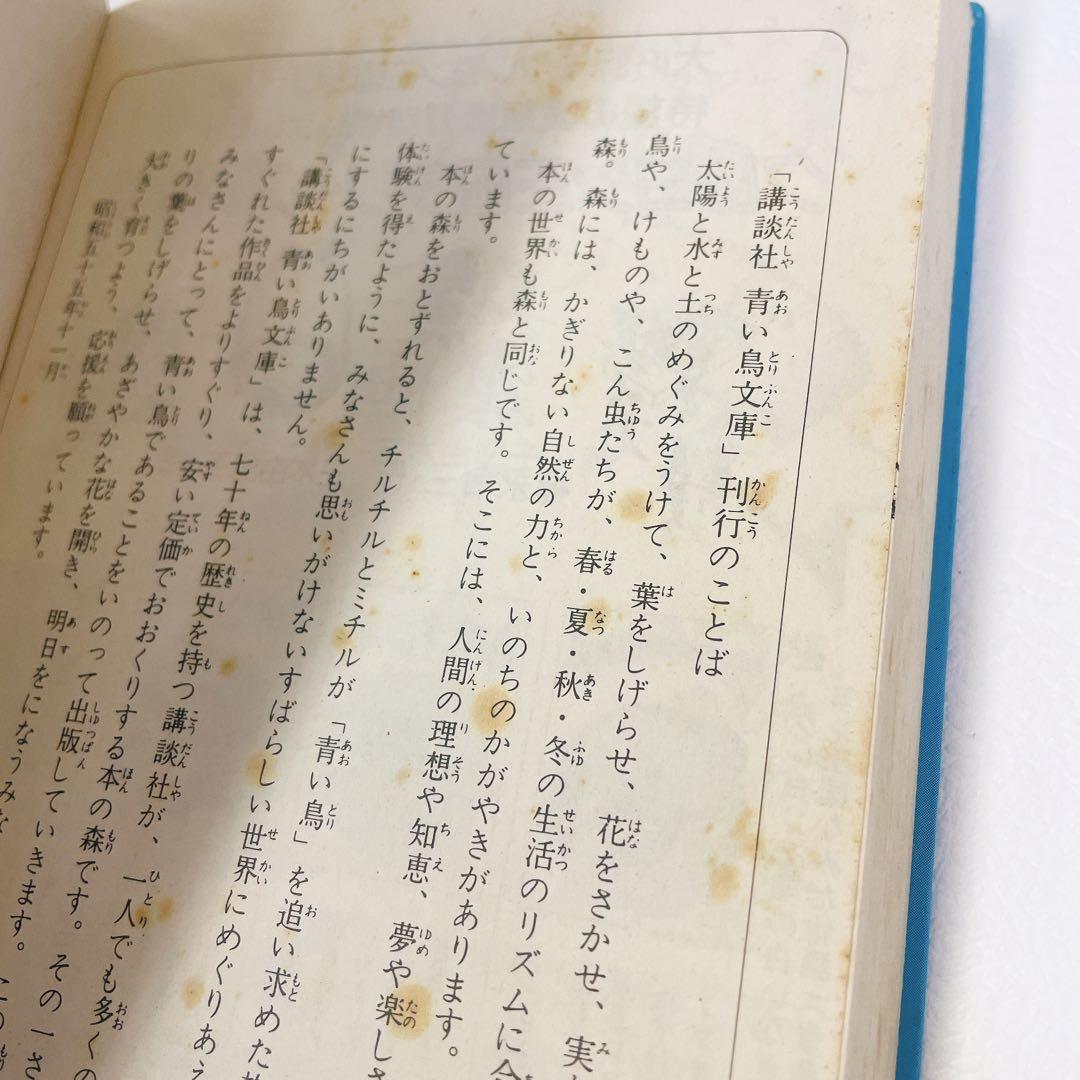 「講談社 青い鳥文庫」刊行のことば
太陽と水と土のめぐみをうけて、葉をしげらせ、花をさかせ、実
鳥や、けものや、こん虫たちが、春・夏・秋・冬の生活のリズムに合
森。森には、かぎりない自然の力と、いのちのかがやきがあります。
本の世界も森と同じです。そこには、人間の理想や知恵、夢や楽しさ
ています。
本の森をおとずれると、チルチルとミチルが「青い鳥」を追い求めた
体験を得たように、みなさんも思いがけないすばらしい世界にめぐりあえ
にするにちがいありません。
「講談社 青い鳥文庫」は、七十年の歴史を持つ講談社が、一人でも多くの
すぐれた作品をよりすぐり、安い定価でおおくりする本の森です。その一さ
みなさんにとって、青い鳥であることをいのって出版していきます。この
りの葉をしげらせ、あざやかな花を開き、明日をになうみな
大きく育つよう、応援を願っています。
昭和五十五年十一月